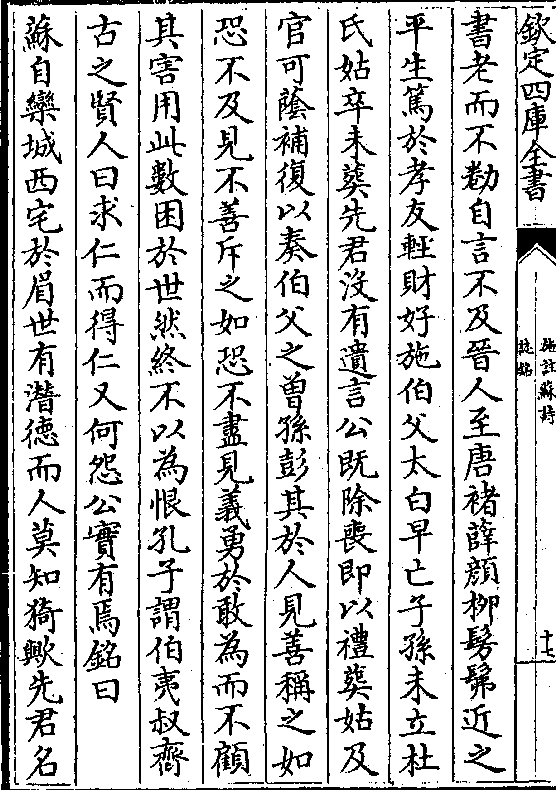 欽定四庫全書
施註蘇詩
誌銘
十七
書老而不勌自言不及晉人至唐褚薛顔柳髣髴近之
平生篤於孝友輕財好施伯父太白早亡子孫未立杜
氏姑卒未葬先君没有遺言公既除喪即以禮葬姑及
官可蔭補復以奏伯父之曽孫彭其於人見善稱之如
恐不及見不善斥之如恐不盡見義勇於敢為而不顧
其害用此數困於世然終不以為恨孔子謂伯夷叔齊
古之賢人曰求仁而得仁又何怨公實有焉銘曰
蘇自欒城西宅於眉世有潛徳而人莫知猗歟先君名